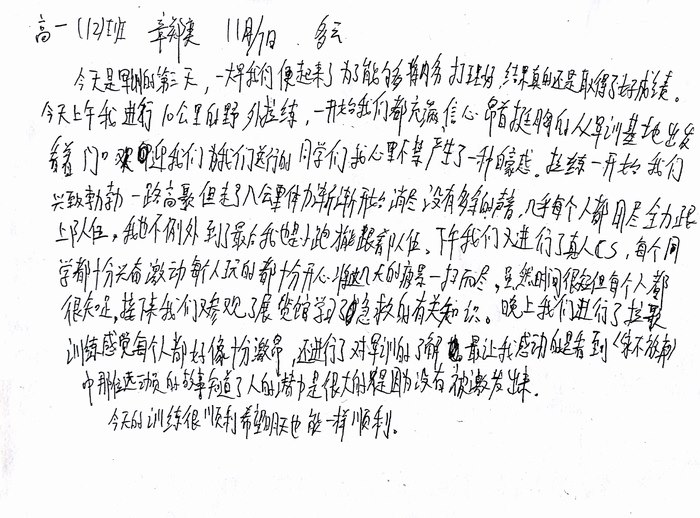 高一(12)班 章郑奕 11月19日 多云
今天是军训的第三天，一大早我们便起来了为了能够将内务打理好，结果真的还是取得了好成绩。
今天上午我进行10公里的野外拉练，一开始我们都充满信心 昂首挺胸的从军训基地出发
看着门口欢迎我们为我们送行的同学们我心里不禁产生了一种自豪感。拉练一开始我们
兴致勃勃 一路高歌但走了八公里体力渐渐开始消尽没有多余的声音，几乎每个人都用尽全力跟
上队伍，我也不例外到了最后我也是小跑才能跟着队伍。下午我们又进行了真人CS，每个同
学都十分兴奋激动每个人玩的都十分开心将这几天的疲惫一扫而尽，虽然时间很短但每个人都
很知足，接下来我们又参观了展览馆学习了急救的有关知识。晚上我们进行了拉歌
训练感觉每个人都好像十分激昂，还进行了对军训的了解 最让我感动的是看到《永不放弃》
中那位运动员的故事知道了人的潜力是很大的只是因为没有被激发出来。
今天的训练很顺利希望明天也能一样顺利。